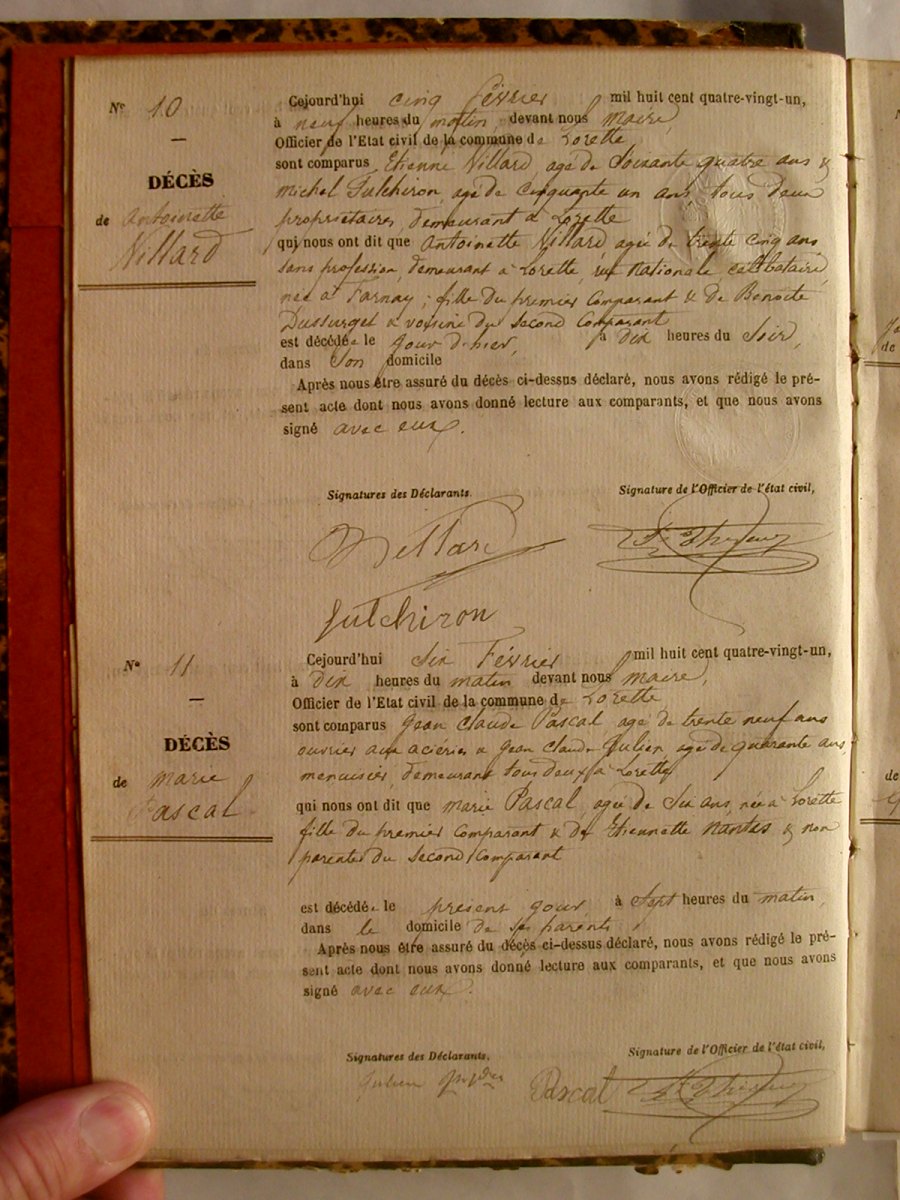 N° 10
DÉCÈS
de Antoinette
Villard
Cejourd'hui cinq Février mil huit cent quatre-vingt-un,
à neuf heures du matin devant nous maire,
Officier de l'Etat civil de la commune de Lorette
sont comparus Etienne Villard, agé de Soixante quatre ans &
Michel Fulchiron, agé de Cinquante un ans, tous deux
propriétaires, demeurant à Lorette
qui nous ont dit que Antoinette Villard agée de trente cinq ans
sans profession, demeurant à Lorette, rue Nationale célibataire,
née à Farnay ; fille du premier Comparant & de Benoite
Dussurget & voisine du Second Comparant
est décédée le jour d'hier, à dix heures du Soir,
dans Son domicile
Après nous être assuré du décès ci-dessus déclaré, nous avons rédigé le pré-
sent acte dont nous avons donné lecture aux comparants, et que nous avons
signé avec eux.
Signatures des Déclarants.
Signature de l'Officier de l'état civil,
Villard
Fulchiron
N° 11
DÉCÈS
de marie
Pascal
Cejourd'hui Six Février mil huit cent quatre-vingt-un,
à Dix heures du matin devant nous maire,
Officier de l'Etat civil de la commune de Lorette
sont comparus Jean Claude Pascal agé de trente neuf ans
ouvrier aux aciéries & Jean Claude Julien agé de quarante ans,
menuisier, demeurant tous deux à Lorette
qui nous ont dit que marie Pascal, agée de Six ans, née à Lorette
fille du premier Comparant & de Etiennette Nantas & non
parente du Second Comparant
est décédée le présent jour, à Sept heures du matin,
dans le domicile de ses parents
Après nous être assuré du décès ci-dessus déclaré, nous avons rédigé le pré-
sent acte dont nous avons donné lecture aux comparants, et que nous avons
signé avec eux.
Signatures des Déclarants.
Signature de l'Officier de l'état civil,
Julien
Pascal